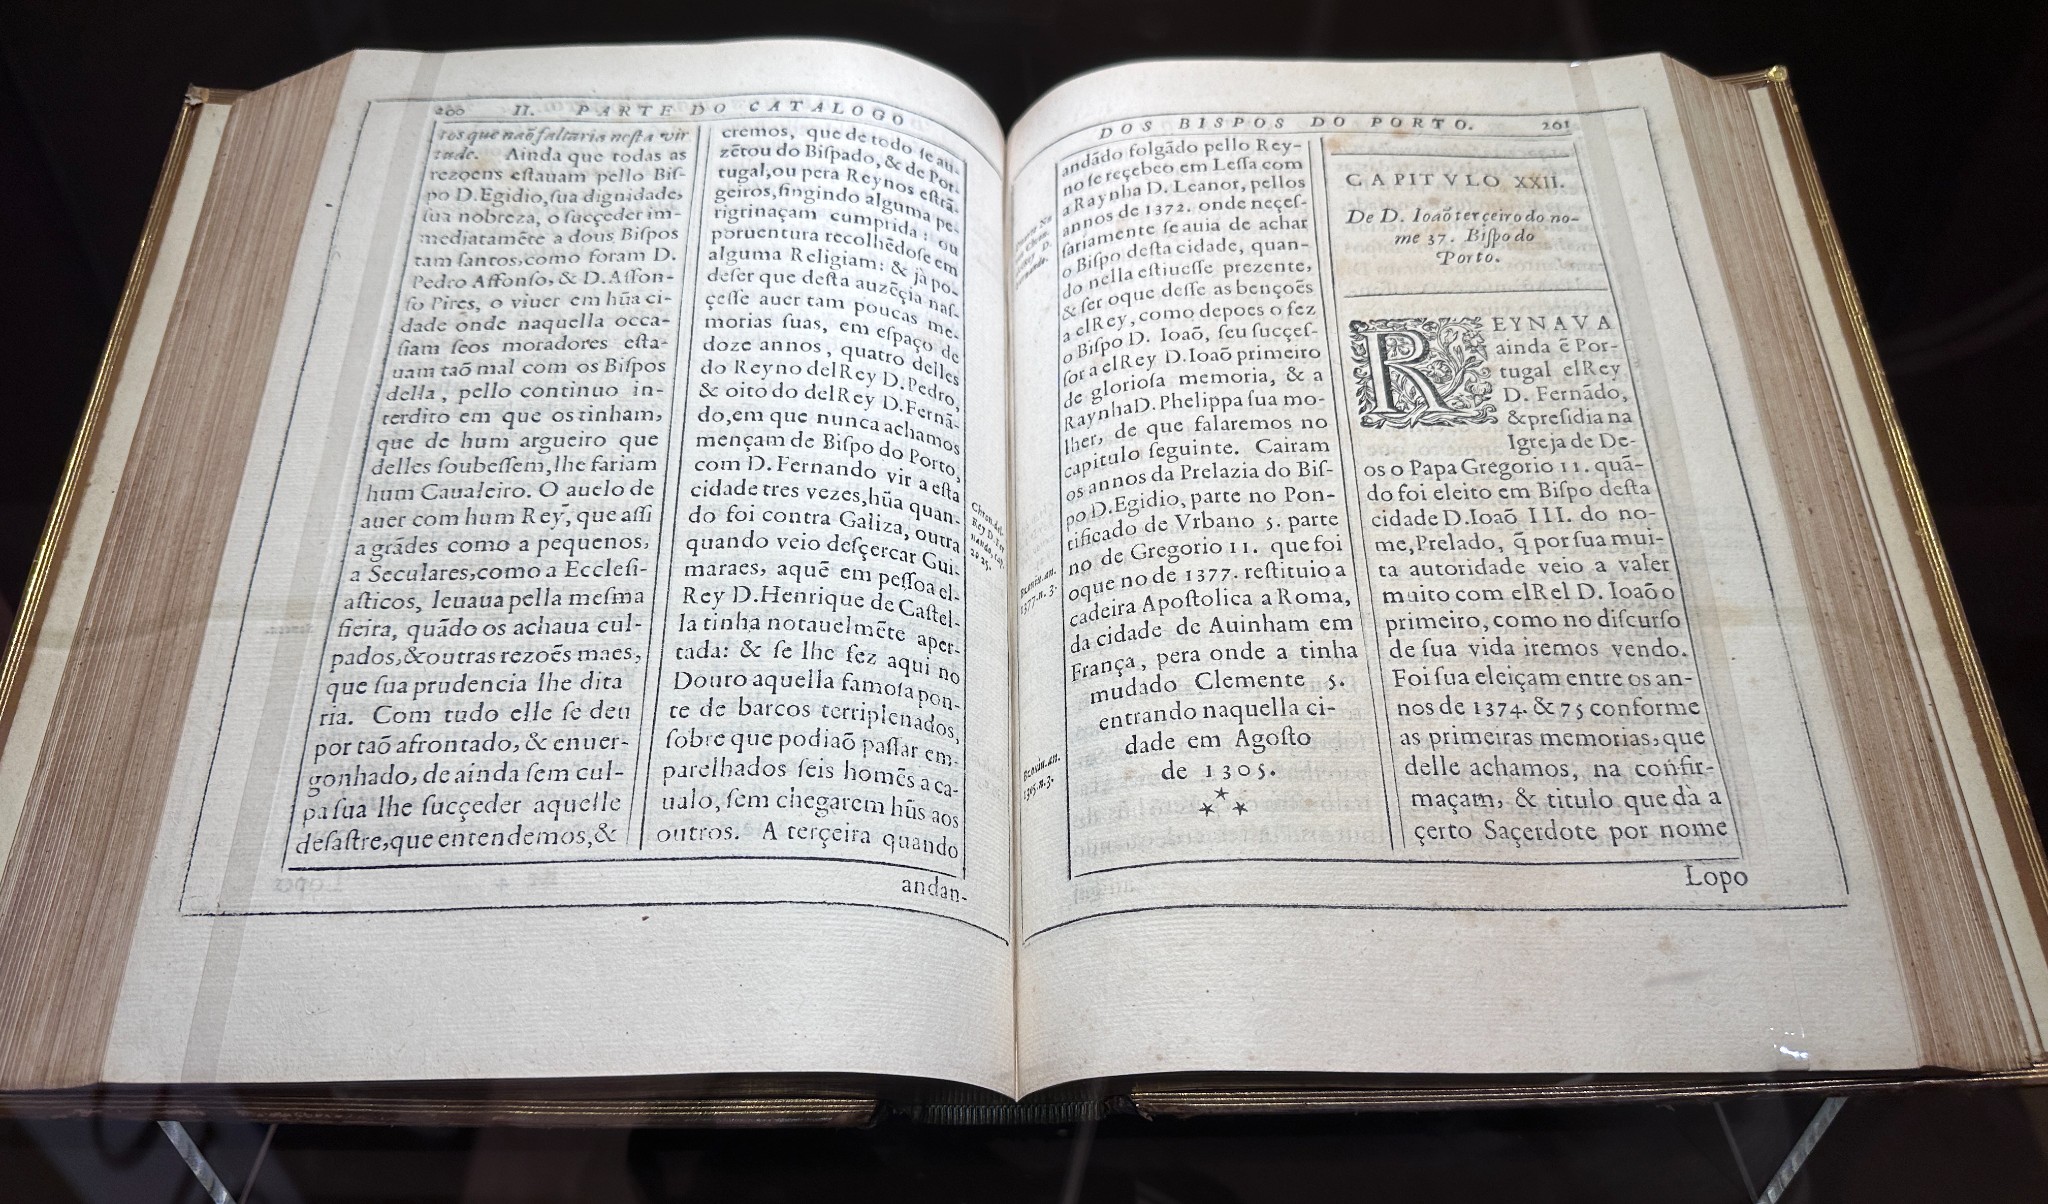 200 II. PARTE DO CATALOGO
ros que naõ faltaria neſta vir
tude. Ainda que todas as
rezoens eſtauam pello Biſ-
po D. Egidio, ſua dignidade,
ſua nobreza, o ſucçeder im-
mediatamẽte a dous Biſpos
tam ſantos, como foram D.
Pedro Affonſo, & D. Affon-
ſo Pires, o viuer em hũa ci-
dade onde naquella occa-
ſiam ſeos moradores eſta-
uam taõ mal com os Biſpos
della, pello continuo in-
terdito em que os tinham,
que de hum argueiro que
delles ſoubeſſem, lhe fariam
hum Caualeiro. O auelo de
auer com hum Rey, que aſſi
a grãdes como a pequenos,
a Seculares, como a Eccleſi-
aſticos, leuaua pella meſma
fieira, quãdo os achaua cul-
pados, & outras rezoẽs maes,
que ſua prudencia lhe dita
ria. Com tudo elle ſe deu
por taõ afrontado, & enuer-
gonhado, de ainda ſem cul-
pa ſua lhe ſucçeder aquelle
deſaſtre, que entendemos, &
cremos, que de todo ſe au-
zẽtou do Biſpado, & de Por-
tugal, ou pera Reynos eſtrã-
geiros, fingindo alguma pe-
rigrinaçam cumprida: ou
poruentura recolhẽdoſe em
alguma Religiam: & jà po-
deſer que deſta auzẽçia naſ-
çeſſe auer tam poucas me-
morias ſuas, em eſpaço de
doze annos, quatro delles
do Reyno delRey D. Pedro,
& oito do delRey D. Fernã-
do, em que nunca achamos
mençam de Biſpo do Porto,
com D. Fernando vir a eſta
cidade tres vezes, hũa quan-
do foi contra Galiza, outra
quando veio deſçercar Gui-
maraes, aquẽ em peſſoa el-
Rey D. Henrique de Caſtel-
la tinha notauelmẽte aper-
tada: & ſe lhe fez aqui no
Douro aquella famoſa pon-
te de barcos terriplenados,
ſobre que podiaõ paſſar em-
parelhados ſeis homẽs a ca-
ualo, ſem chegarem hũs aos
outros. A terçeira quando
Chron. del
Rey D. Fer
nando, cap.
29 25.
andan-
DOS BISPOS DO PORTO. 201
andãdo folgãdo pello Rey-
no ſe reçebeo em Leſſa com
a Raynha D. Leanor, pellos
annos de 1372. onde neçeſ-
ſariamente ſe auia de achar
o Biſpo deſta cidade, quan-
do nella eſtiueſſe prezente,
& ſer oque deſſe as bençoẽs
a elRey, como depoes o fez
o Biſpo D. Ioaõ, ſeu ſucçeſ-
ſor a elRey D. Ioaõ primeiro
de glorioſa memoria, & a
Raynha D. Phelippa ſua mo-
lher, de que falaremos no
capitulo ſeguinte. Cairam
os annos da Prelazia do Biſ-
po D. Egidio, parte no Pon-
tificado de Vrbano 5. parte
no de Gregorio 11. que foi
oque no de 1377. reſtituio a
cadeira Apoſtolica a Roma,
da cidade de Auinham em
França, pera onde a tinha
mudado Clemente 5.
entrando naquella ci-
dade em Agoſto
de 1305.
1377. n. 3.
1305. n. 3.
CAPITVLO XXII.
De D. Ioaõ terçeiro do no-
me 37. Biſpo do
Porto.
REYNAVA
ainda ẽ Por-
tugal elRey
D. Fernãdo,
& preſidia na
Igreja de De-
os o Papa Gregorio 11. quã-
do foi eleito em Biſpo deſta
cidade D. Ioaõ III. do no-
me, Prelado, q̃ por ſua mui-
ta autoridade veio a valer
muito com elRel D. Ioaõ o
primeiro, como no diſcurſo
de ſua vida iremos vendo.
Foi ſua eleiçam entre os an-
nos de 1374. & 75 conforme
as primeiras memorias, que
delle achamos, na confir-
maçam, & titulo que dà a
çerto Saçerdote por nome
Lopo